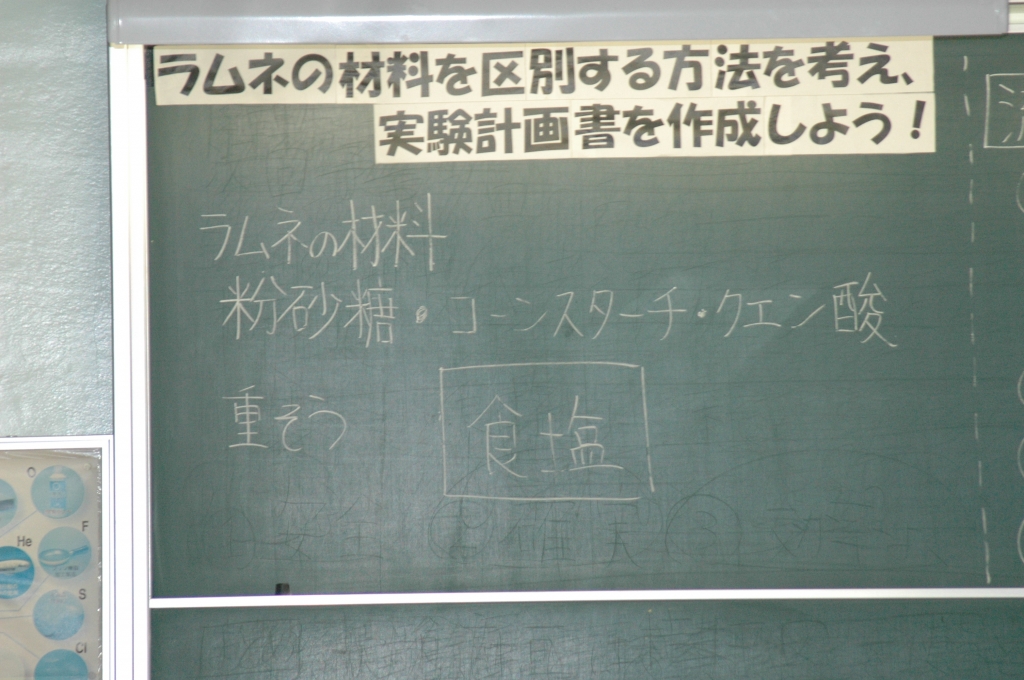 ラムネの材料を区別する方法を考え、
実験計画書を作成しよう！
ラムネの材料
粉砂糖・コーンスターチ・クエン酸
重そう
食塩
O
F
He
S
Cl